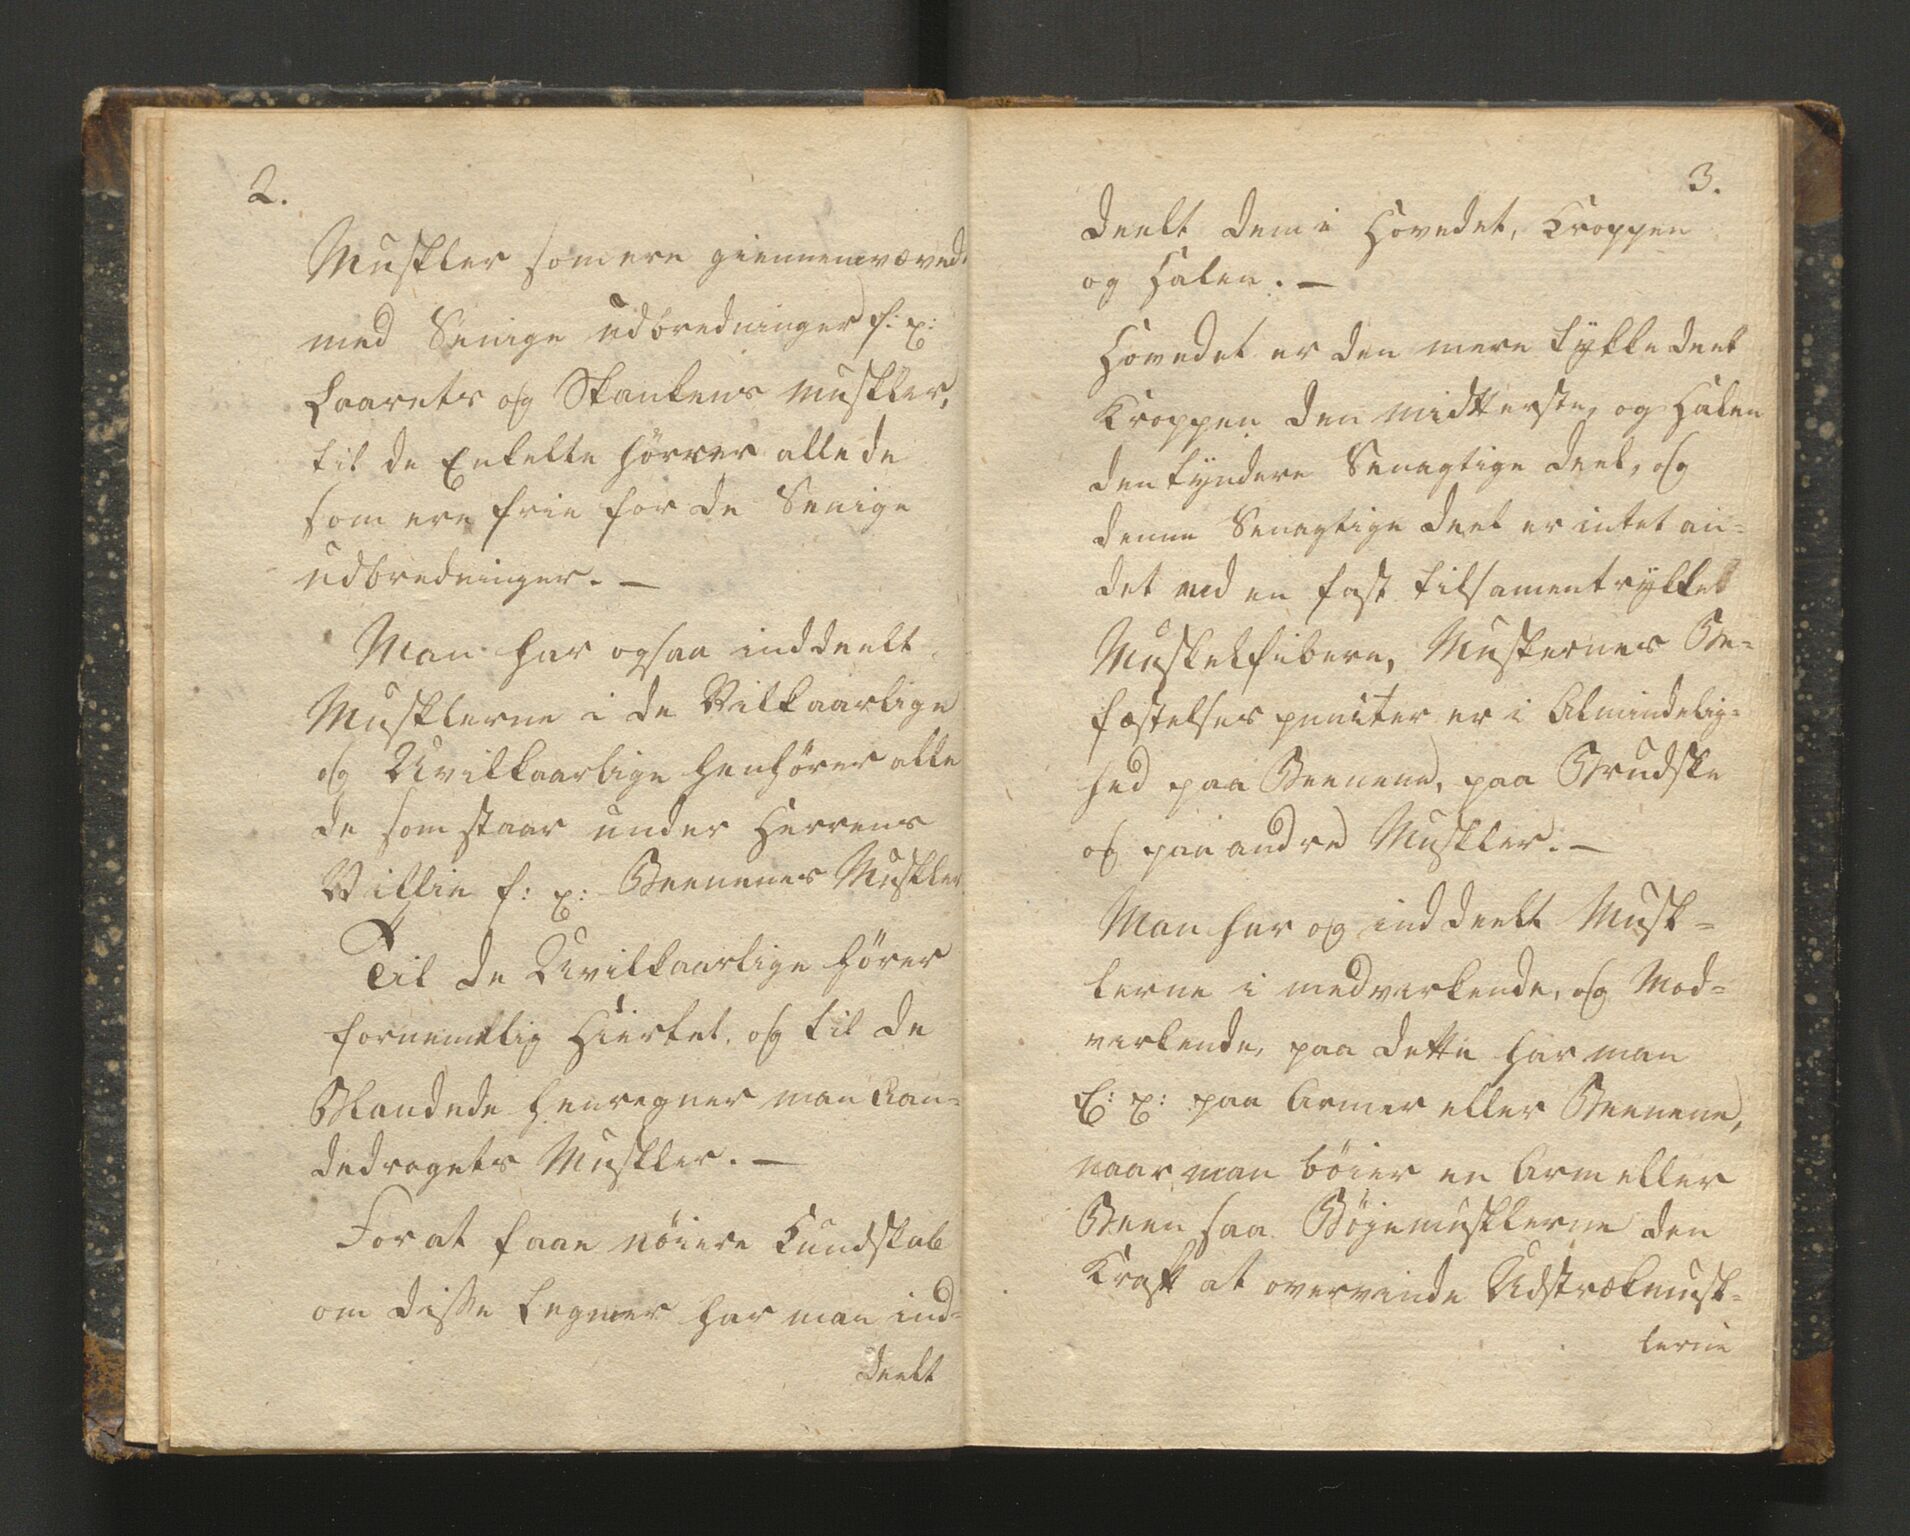 2.
Muskler som ere giennemvæved
med Senige udbredninger f: x:
Laarets og Skankens muskler,
til de Enkelte hörrer alle de
som ere frie for de Senige
udbredninger. —
Man har ogsaa inddeelt
Musklerne i de Vilkaarlige
og Uvilkaarlige henhörer alle
de som staar under Herrens
Villie f: x: Beenenes Muskler
Til de Uvilkaarlige hörer
fornemlig Hiertet, og til de
Blandede henregner man Aan-
dedragets Muskler. —
For at faae nöiere Kundskab
om disse Legmer har man ind-
deelt
3.
deelt dem i Hovedet, Kroppen
og Halen. —
Hovedet er den mere tykke deel
Kroppen den midtterste, og Halen
den tyndere Senagtige deel, og
denne Senagtige deel er intet an-
det end en fast tilsamentrykket
Muskelfibere, Muskernes Be-
fæstelses puncter er i Almindelig-
hed paa Beenene, paa Brudske
og paa andre Muskler. —
Man har og inddeelt Musk-
lerne i medvirkende, og Mod-
virkende, paa dette har man
E: x: paa Armer eller Beenene,
naar man böier en Arm eller
Been saa Böjemusklerne den
Kraft at overvinde Udstrækmusk-
lerne